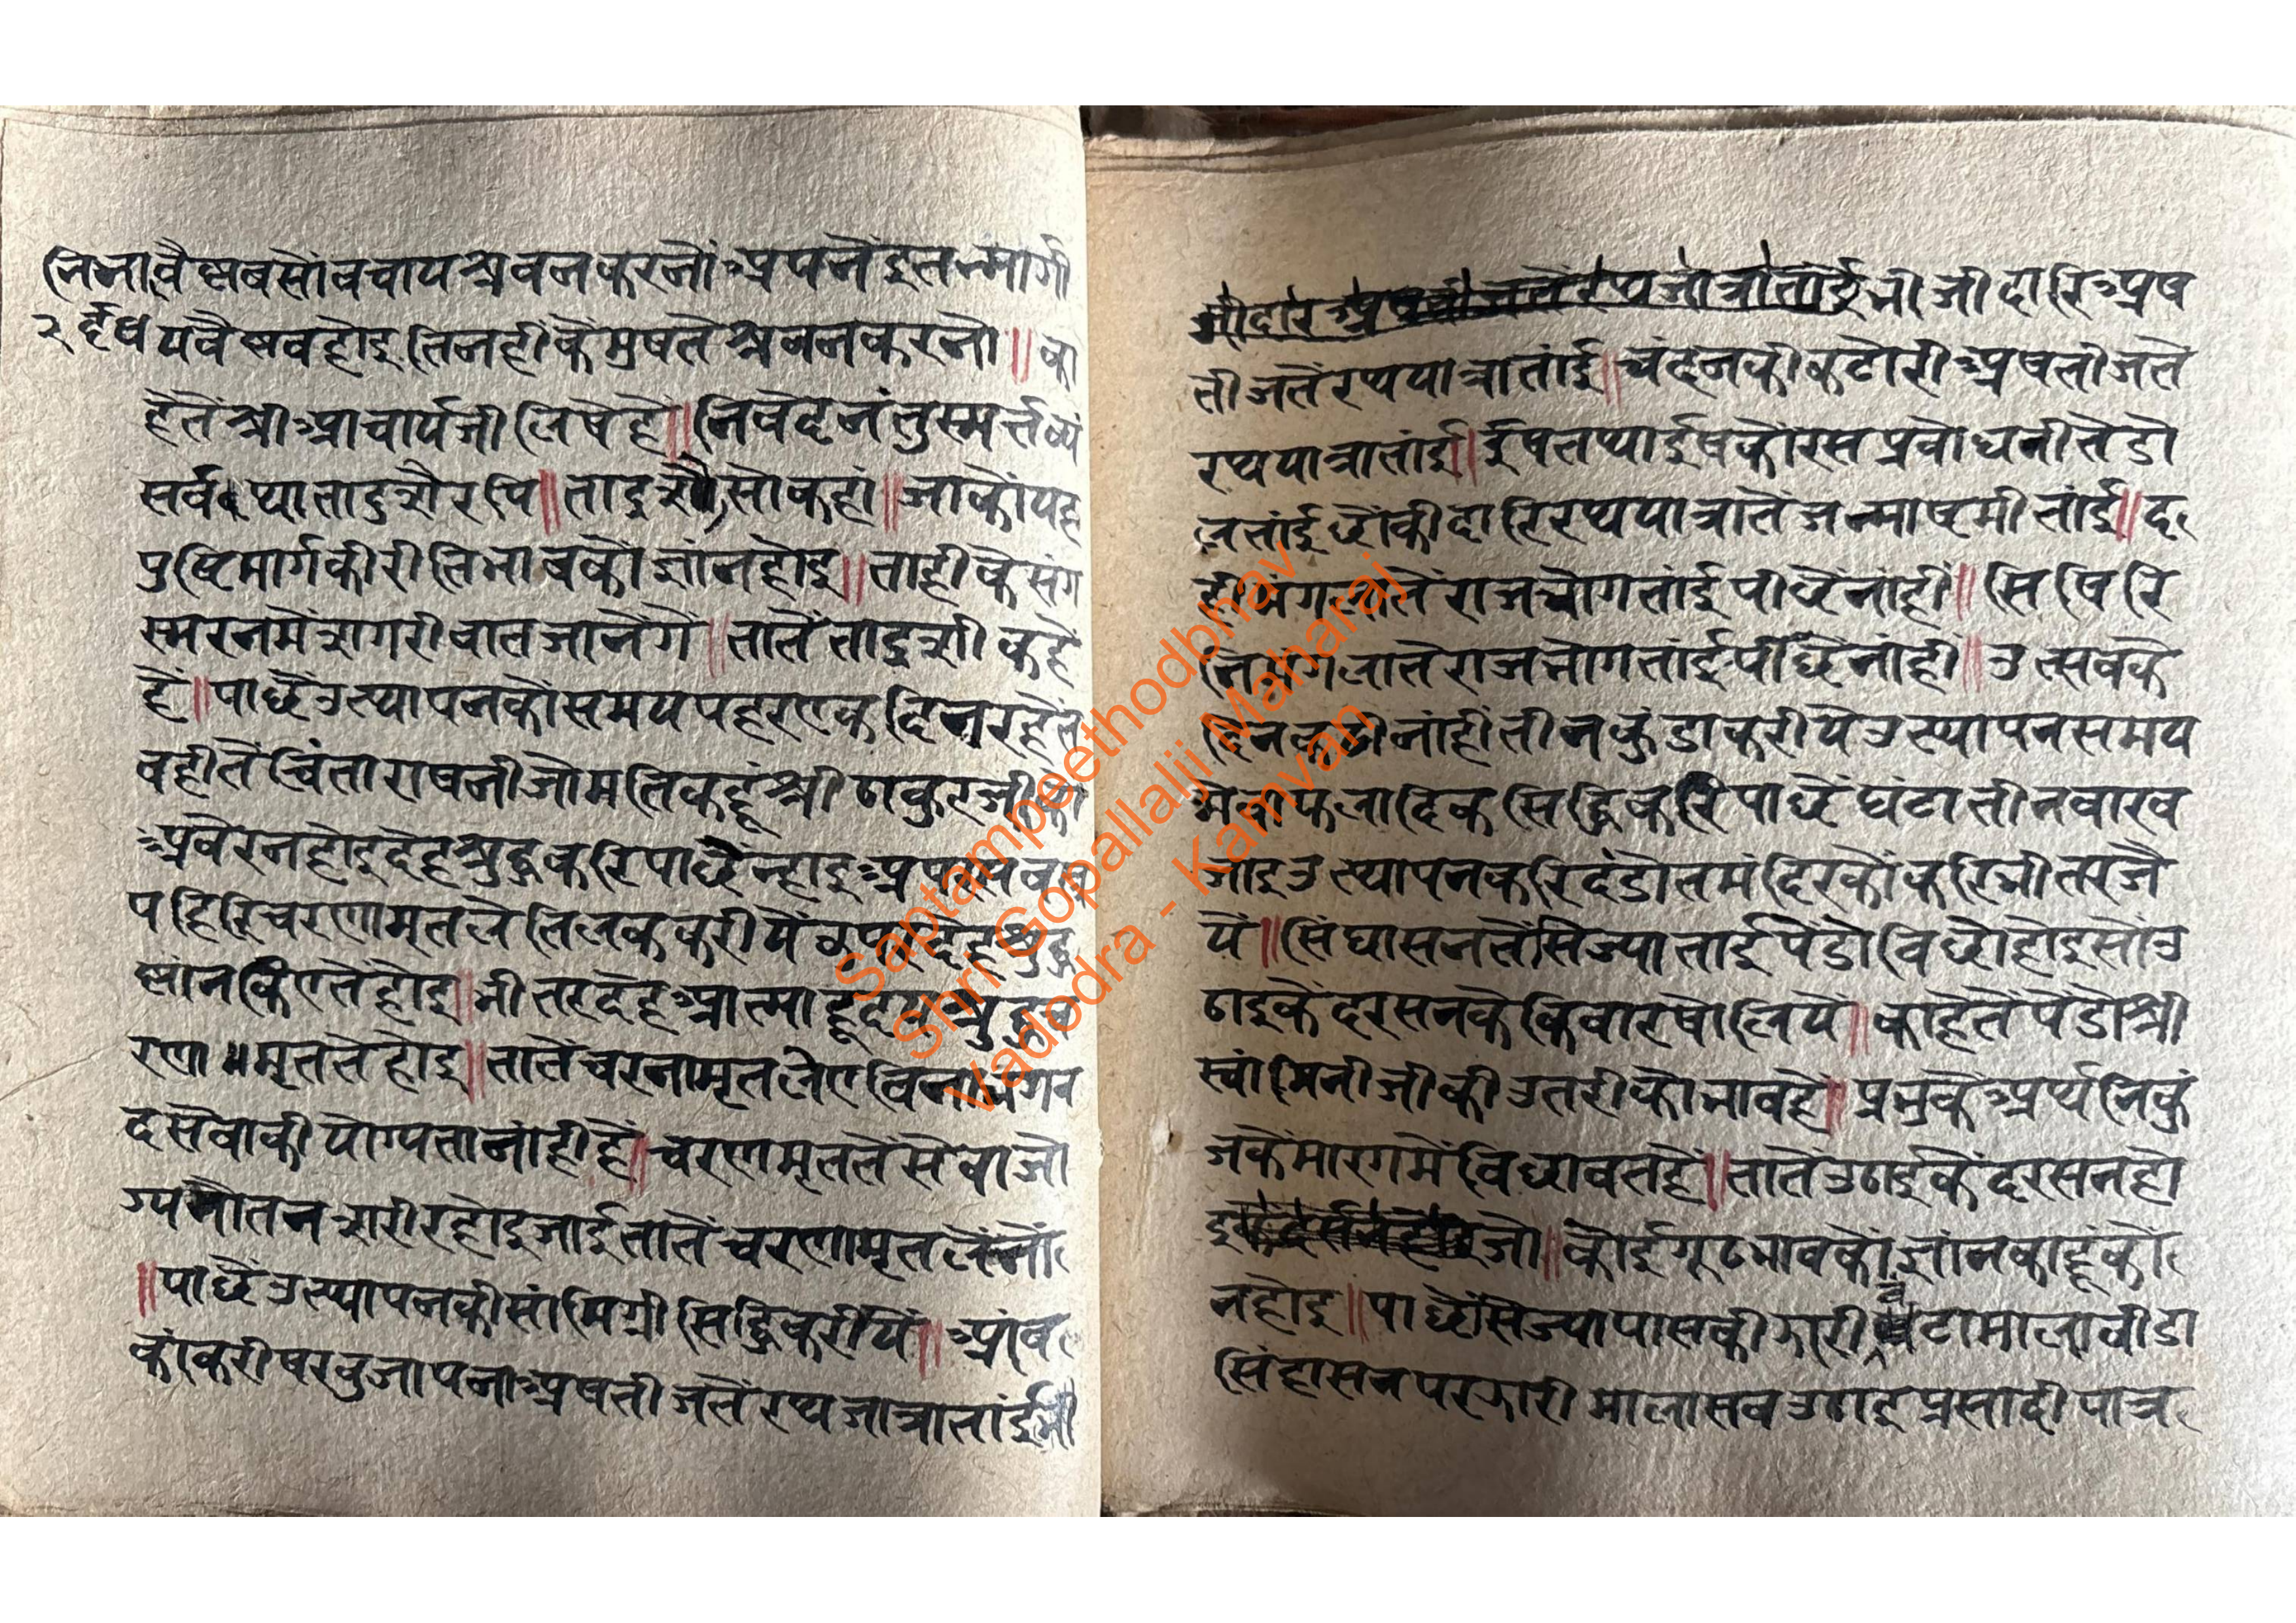 निजा वैष्णव सों बचाय श्रवन करनों अपनें इतन्मार्गी
२ हृदय य वैष्णव होइ तिनहीं कें मुषतें श्रवन करनो ॥ का
हेतें श्री आचार्यजी लिषे हें ॥ निवेदनं तु स्मर्त्तव्यं
सर्वथा तादृशैरपि ॥ तादृशी सो कहां ॥ जाकों यह
पुष्टिमार्ग की रीति भाव को ज्ञांन होइ ॥ ताही के संग
स्मरन में सगरी बात जानेंगे ॥ तातें तादृशी कहें
हें ॥ पाछें उत्थापन कों समय पहर एक दिन रहें तें
वहीतें चिंता राषनी जो मति कहूं श्री ठाकुरजी कों
अवेर न होइ देह श्रुद्ध करि पाछें न्हाइ अपरस वस्त्र
पहिरि चरणामृत ले तिलक करीयें उपर देह श्रुद्ध
स्नांन किए तें होइ ॥ भीतर देह आत्मा हृदय श्रुद्ध च
रणामृत तें होइ ॥ तातें चरनामृत लेए विना भगव
द सेवा की योग्यता नांही हें ॥ चरणामृत तें सेवा जो
ग्य नौतन शरीर होइ जाई तातें चरणामृत लेंनों
॥ पाछें उत्थापन की सांमिग्री सिद्धि करीयें ॥ आंब
कांकरी षरबुजा पना अषतीज तें रथजात्रा तांई भी
जी दारि अष
तीज तें रथयात्रा तांई ॥ चंदन की कटोरी अषतीज तें
रथयात्रा तांई ॥ ईष तथा ईष को रस प्रबोधनी तें डो
ल तांई छोंकी दारि रथयात्रा तें जन्माष्टमी तांई ॥ द
ही मंगला तें राजभोग तांई पीछें नांही ॥ सिषिरि
नि मंगला तें राजभोग तांई पीछें नांही ॥ उत्सव के
दिन कढी नांही तीनकुंडा करीये उत्थापन समय
मेवा फलादिक सिद्धि करि पाछें घंटा तीन वार ब
जाइ उत्थापन करि दंडोत मंदिर कों करि भीतर जै
यें ॥ सिंघासन तें सिज्या तांई पेंडो विछो होइ सो उ
ठाइ कें दरसन के किवार षोलियें ॥ काहेतें पेंडो श्री
स्वांमिनीजी की उतरी को भाव हे ॥ प्रभु के अर्थ निकुं
ज के मारग में विछावत हें ॥ तातें उठाई कें दरसन हो
इ जो ॥ कोई गूढ भाव को ज्ञांन काहूं कों
न होइ ॥ पाछें सिज्या पास की झारी बंटा माला बीडा
सिंहासन पर झारी माला सब उठाइ प्रसादी पात्र
Saptampeethodbhav
Shri Gopallalji Maharaj
Vadodra - Kamvan